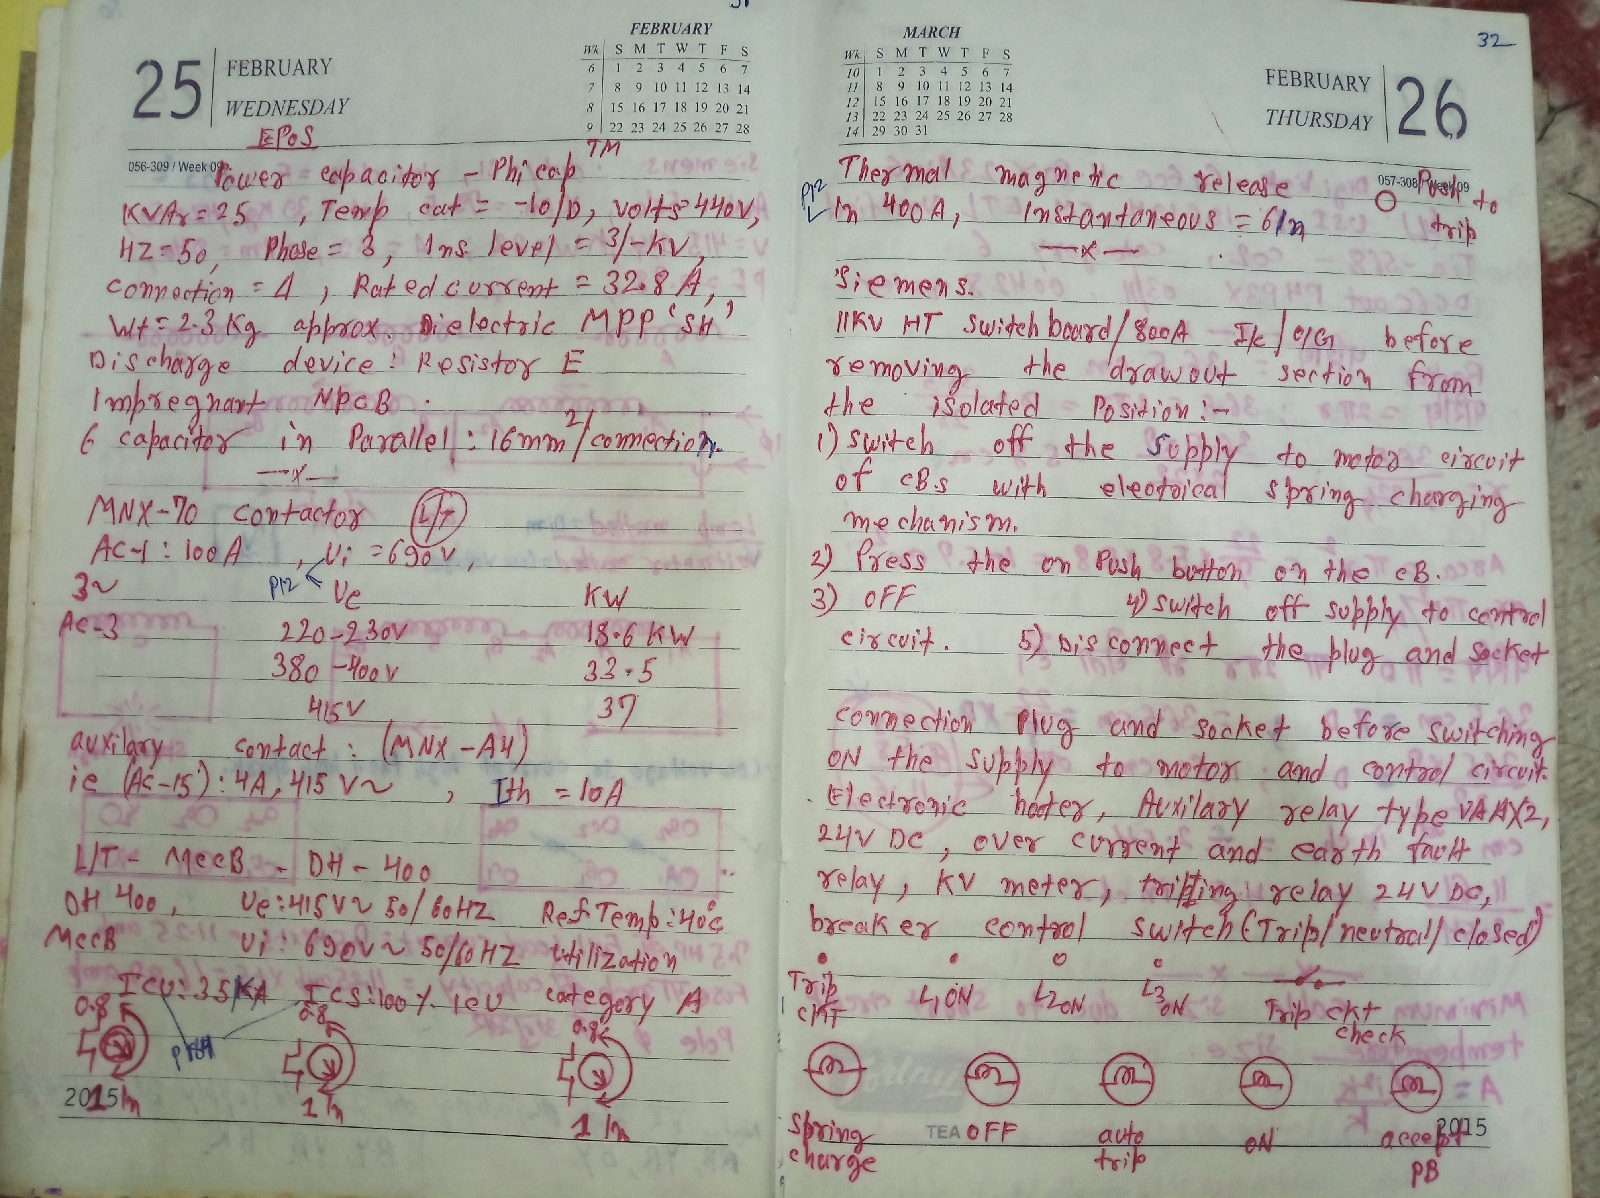 31
25 FEBRUARY
WEDNESDAY
FEBRUARY
Wk S M T W T F S
6 1 2 3 4 5 6 7
7 8 9 10 11 12 13 14
8 15 16 17 18 19 20 21
9 22 23 24 25 26 27 28
EPOS
056-309 / Week 09
Power capacitor - Phicap TM
KVAr = 25 , Temp cat = -10/D, volts = 440V,
HZ = 50, Phase = 3, Ins. level = 3/-KV,
connection = Δ , Rated current = 32.8 A,
Wt = 2.3 Kg approx. Dielectric MPP 'SH'
Discharge device : Resistor E
Impregnant NPCB .
6 capacitor in Parallel : 16mm²/connection.
—x—
MNX-70 contactor L/T
AC-1 : 100A , Ui = 690V,
3~ P12 Ue KW
AC-3 220-230V 18.6 KW
380-400V 33.5
415V 37
auxilary contact : (MNX-A4)
ie (AC-15) : 4A, 415 V~ , Ith = 10A
L/T - MCCB - DH - 400
DH 400, Ue : 415V~ 50/60HZ Ref. Temp : 40°C
MCCB Ui : 690V~ 50/60HZ utilization
ICU : 35KA ICS : 100% ICU category A
0.8 0.8 0.8
1 In 1 In 1 In
2015
32
MARCH
Wk S M T W T F S
10 1 2 3 4 5 6 7
11 8 9 10 11 12 13 14
12 15 16 17 18 19 20 21
13 22 23 24 25 26 27 28
14 29 30 31
FEBRUARY 26
THURSDAY
057-308 / Week 09
Thermal magnetic release Push to
P12 In 400A, Instantaneous = 6In trip
—x—
Siemens.
11KV HT switchboard/800A I/c/O/G before
removing the drawout section from
the isolated Position :-
1) switch off the supply to motor circuit
of CBs with electrical spring charging
mechanism.
2) Press the on Push button on the CB.
3) OFF 4) switch off supply to control
circuit. 5) Disconnect the plug and socket
connection Plug and socket before switching
ON the supply to motor and control circuit.
Electronic hooter, Auxilary relay type VAAX2,
24V DC, over current and earth fault
relay, KV meter, tripping relay 24V DC,
breaker control switch (Trip/neutral/closed)
Trip L1 ON L2 ON L3 ON Trip ckt
CKT check
Spring OFF auto ON accept
charge trip PB
TEA
2015